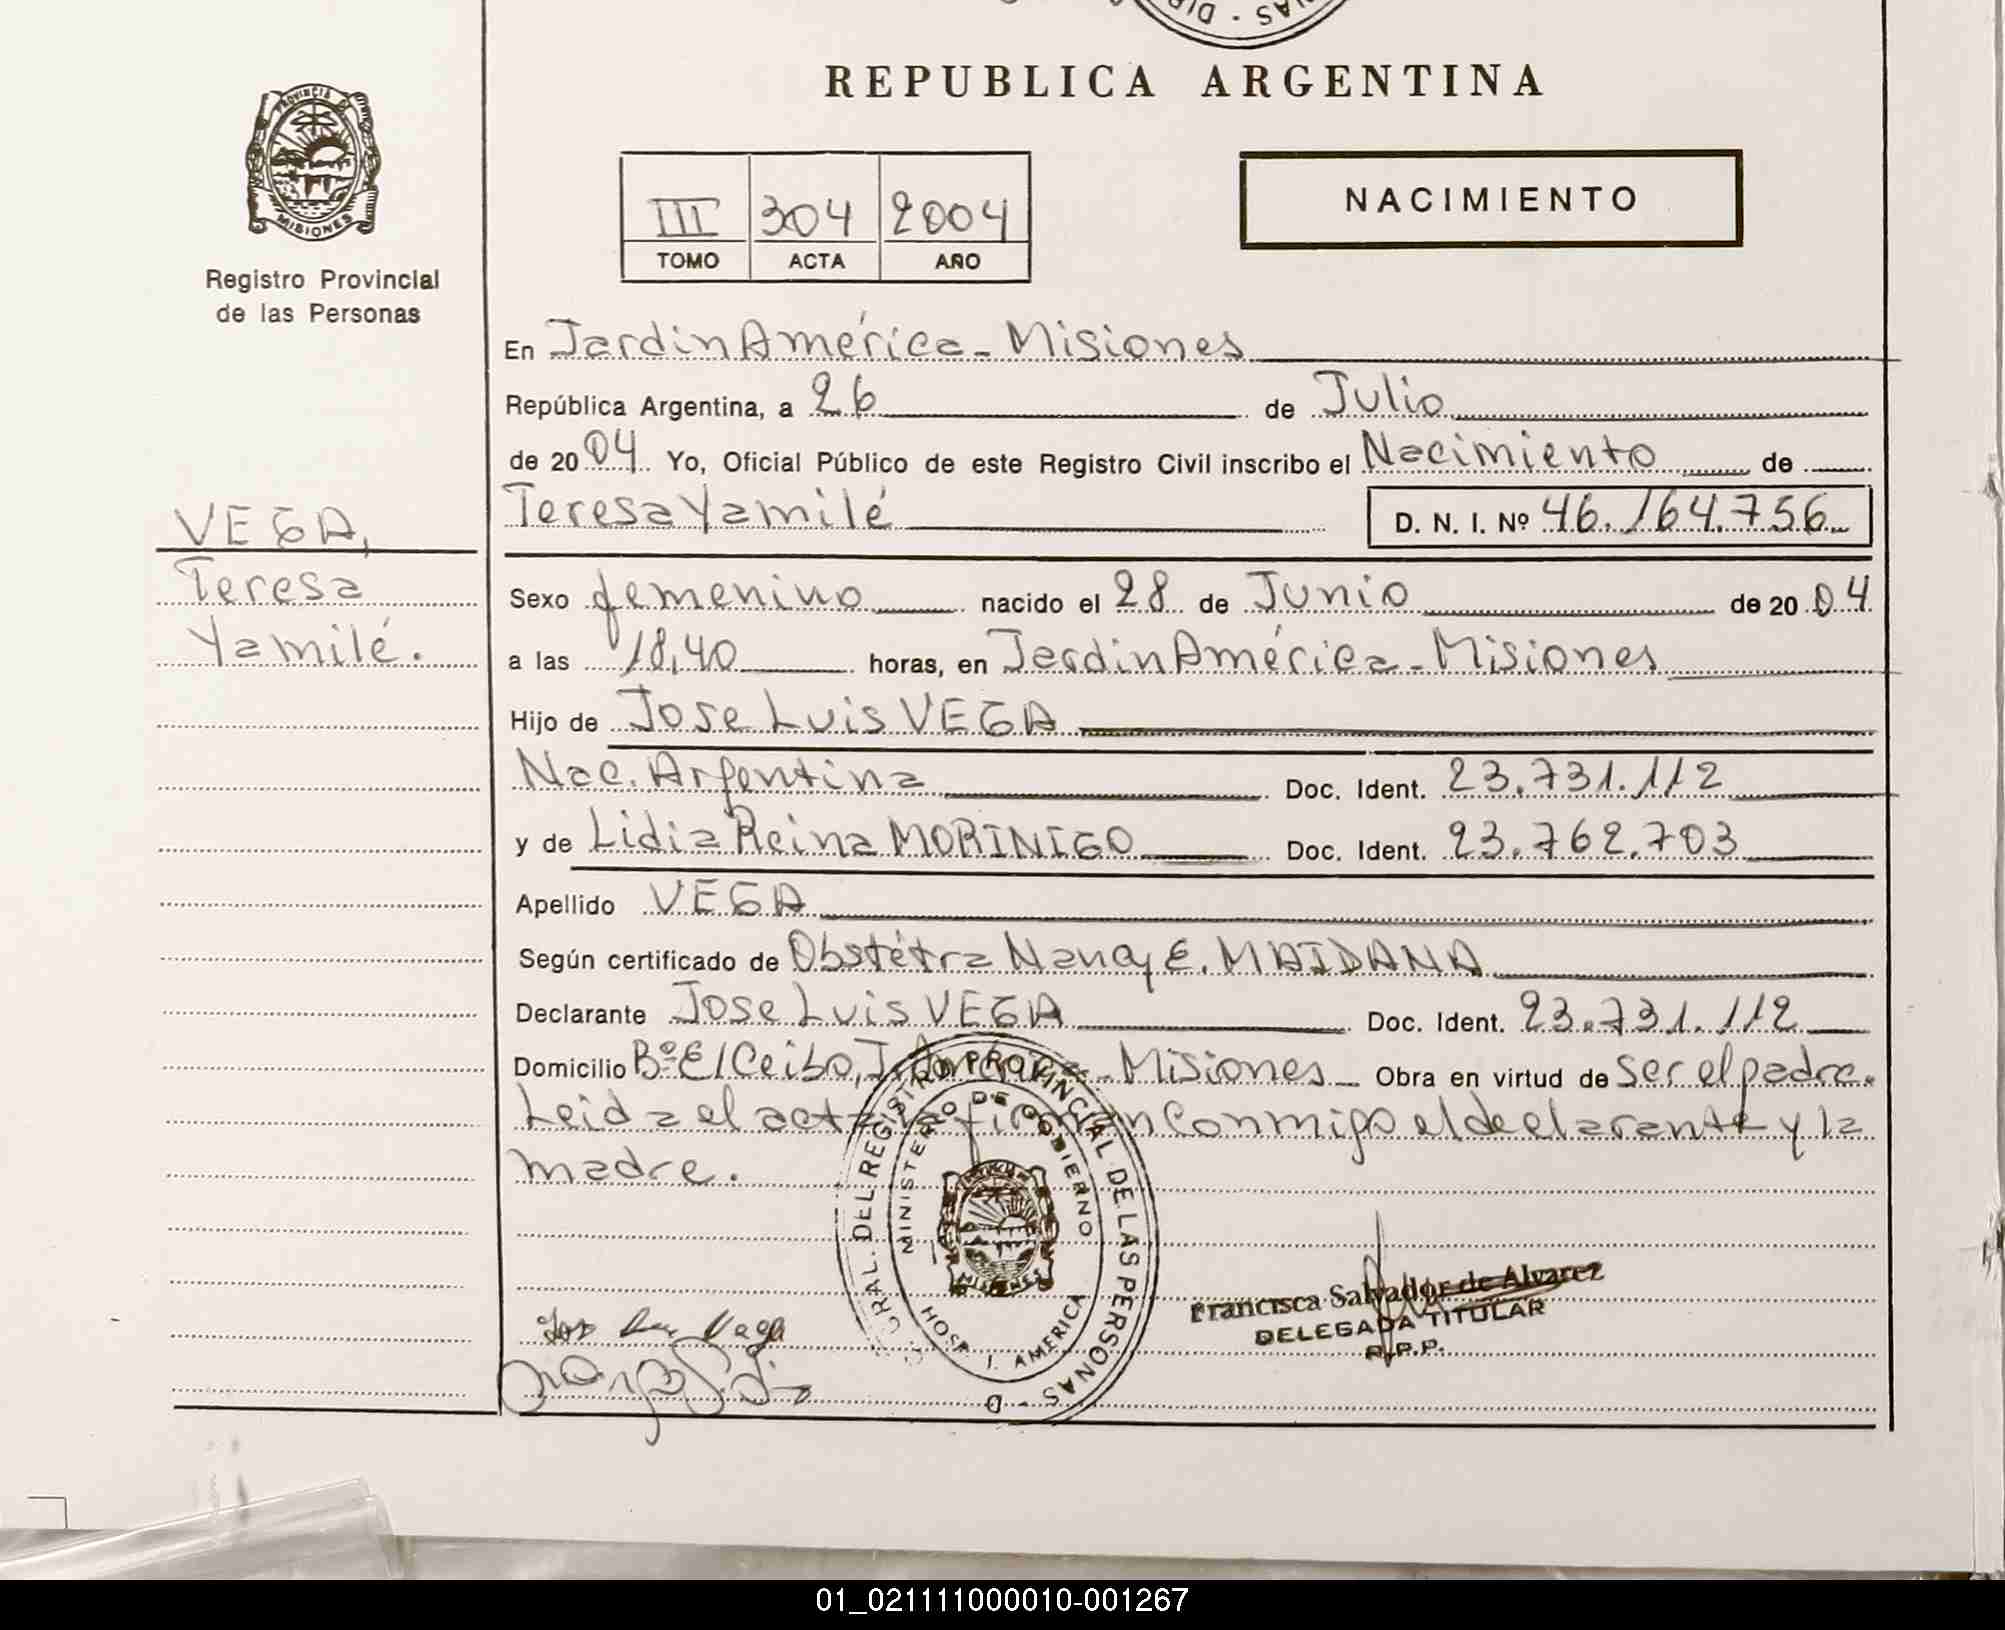 DIR · NAS
REPUBLICA ARGENTINA
PROVINCIA D
MISIONES
Registro Provincial
de las Personas
III 304 2004
TOMO ACTA AÑO
NACIMIENTO
En Jardin América - Misiones
República Argentina, a 26 de Julio
de 2004 Yo, Oficial Público de este Registro Civil inscribo el Nacimiento de
Teresa Yamilé D. N. I. Nº 46.164.756
VEGA,
Teresa
Yamilé.
Sexo femenino nacido el 28 de Junio de 2004
a las 18,40 horas, en Jardin América - Misiones
Hijo de Jose Luis VEGA
Nac. Argentina Doc. Ident. 23.731.112
y de Lidia Reina MORINIGO Doc. Ident. 23.762.703
Apellido VEGA
Según certificado de Obstétra Nancy E. MAIDANA
Declarante Jose Luis VEGA Doc. Ident. 23.731.112
Domicilio Bº El Ceibo, J. América - Misiones Obra en virtud de ser el padre.
Leida el acta la firman conmigo el declarante y la
madre.
GRAL. DEL REGISTRO PROVINCIAL DE LAS PERSONAS - D
MINISTERIO DE GOBIERNO
MISIONES
HOSP. J. AMERICA
Francisca Salvador de Alvarez
DELEGADA TITULAR
R.P.P.
Jose Luis Vega
01_021111000010-001267